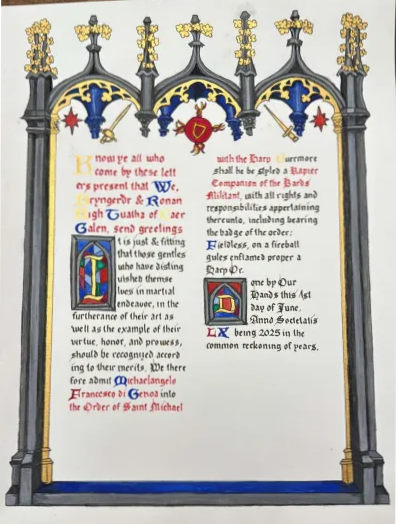 Know ye all who
come by these lett
ers present that We,
Bryngerde & Ronan
High Tuatha of Caer
Galen, send greetings
It is just & fitting
that those gentles
who have disting
uished themse
lves in martial
endeavor, in the
furtherance of their art as
well as the example of their
virtue, honor, and prowess,
should be recognized accord
ing to their merits. We there
fore admit Michaelangelo
Francesco di Genoa into
the Order of Saint Michael
with the Harp
shall he be styled a Rapier
Companion of the Bards
Militant, with all rights and
responsibilities appertaining
thereunto, including bearing
the badge of the order:
Fieldless, on a fireball
gules enflamed proper a
Harp Or.
Done by Our
Hands this 1st
day of June,
Anno Societatis
LX being 2025 in the
common reckoning of years.